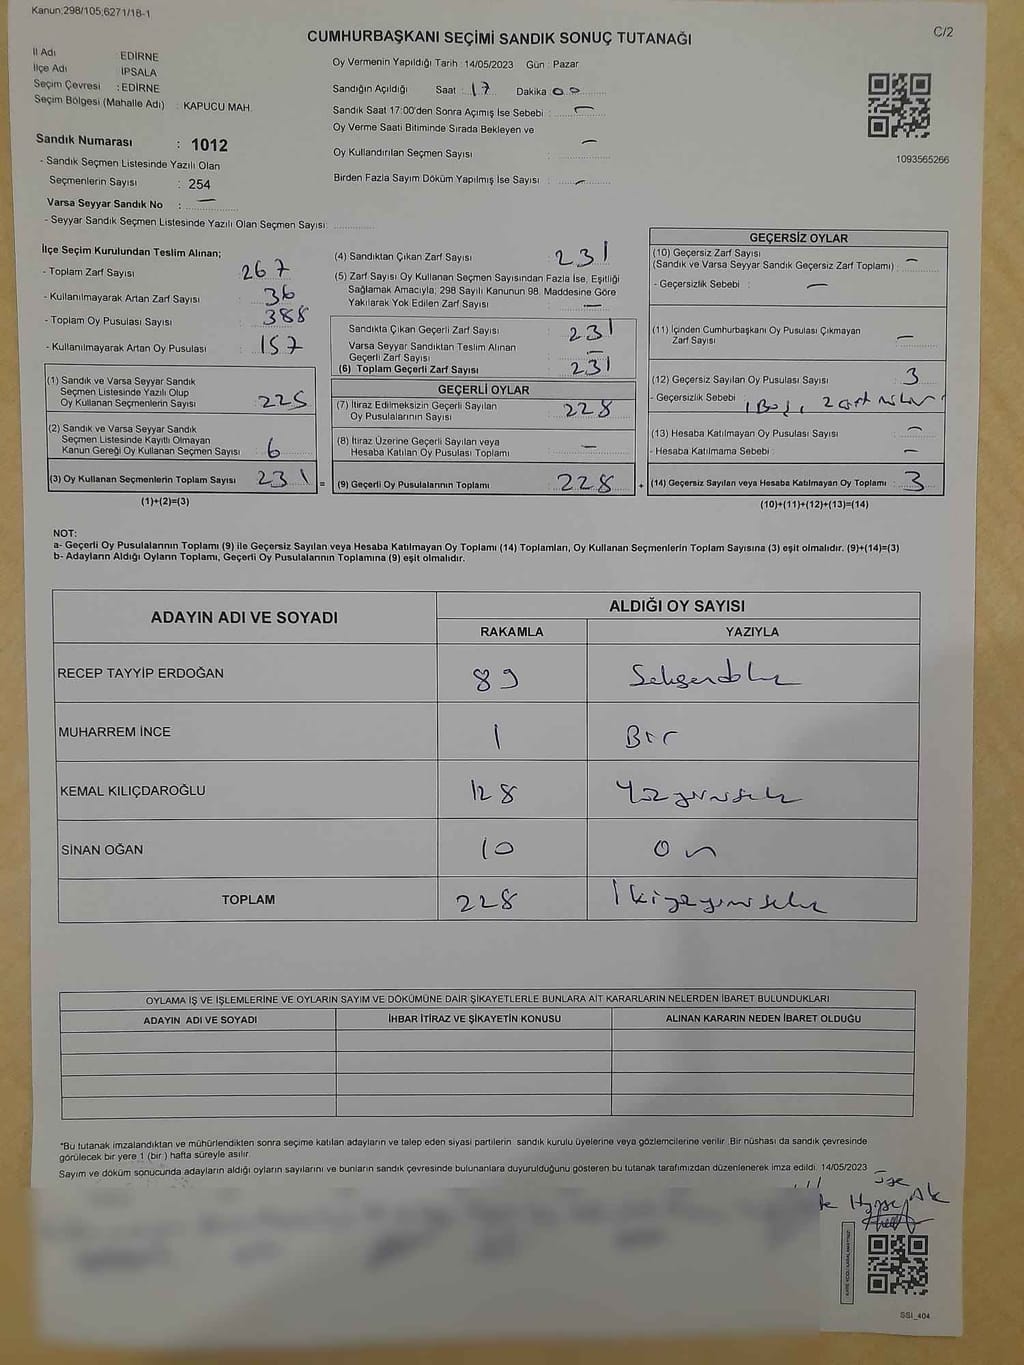 Kanun;298/105;6271/18-1
C/2
CUMHURBAŞKANI SEÇİMİ SANDIK SONUÇ TUTANAĞI
İl Adı EDİRNE
İlçe Adı İPSALA
Seçim Çevresi : EDİRNE
Seçim Bölgesi (Mahalle Adı) : KAPUCU MAH.
Sandık Numarası : 1012
- Sandık Seçmen Listesinde Yazılı Olan
Seçmenlerin Sayısı : 254
Varsa Seyyar Sandık No : —
- Seyyar Sandık Seçmen Listesinde Yazılı Olan Seçmen Sayısı:
Oy Vermenin Yapıldığı Tarih : 14/05/2023 Gün : Pazar
Sandığın Açıldığı Saat : 17 Dakika 00
Sandık Saat 17:00'den Sonra Açımış İse Sebebi : —
Oy Verme Saati Bitiminde Sırada Bekleyen ve
Oy Kullandırılan Seçmen Sayısı : —
Birden Fazla Sayım Döküm Yapılmış İse Sayısı : —
1093565266
İlçe Seçim Kurulundan Teslim Alınan;
- Toplam Zarf Sayısı : 267
- Kullanılmayarak Artan Zarf Sayısı : 36
- Toplam Oy Pusulası Sayısı : 388
- Kullanılmayarak Artan Oy Pusulası : 157
(1) Sandık ve Varsa Seyyar Sandık
Seçmen Listesinde Yazılı Olup
Oy Kullanan Seçmenlerin Sayısı : 225
(2) Sandık ve Varsa Seyyar Sandık
Seçmen Listesinde Kayıtlı Olmayan
Kanun Gereği Oy Kullanan Seçmen Sayısı : 6
(3) Oy Kullanan Seçmenlerin Toplam Sayısı : 231 =
(1)+(2)=(3)
(4) Sandıktan Çıkan Zarf Sayısı : 231
(5) Zarf Sayısı Oy Kullanan Seçmen Sayısından Fazla İse, Eşitliği
Sağlamak Amacıyla; 298 Sayılı Kanunun 98. Maddesine Göre
Yakılarak Yok Edilen Zarf Sayısı : —
Sandıkta Çıkan Geçerli Zarf Sayısı : 231
Varsa Seyyar Sandıktan Teslim Alınan
Geçerli Zarf Sayısı : —
(6) Toplam Geçerli Zarf Sayısı : 231
GEÇERLİ OYLAR
(7) İtiraz Edilmeksizin Geçerli Sayılan
Oy Pusulalarının Sayısı : 228
(8) İtiraz Üzerine Geçerli Sayılan veya
Hesaba Katılan Oy Pusulası Toplamı : —
(9) Geçerli Oy Pusulalarının Toplamı : 228 +
GEÇERSİZ OYLAR
(10) Geçersiz Zarf Sayısı
(Sandık ve Varsa Seyyar Sandık Geçersiz Zarf Toplamı) : —
- Geçersizlik Sebebi : —
(11) İçinden Cumhurbaşkanı Oy Pusulası Çıkmayan
Zarf Sayısı : —
(12) Geçersiz Sayılan Oy Pusulası Sayısı : 3
- Geçersizlik Sebebi : 1 Boş, 2
(13) Hesaba Katılmayan Oy Pusulası Sayısı : —
- Hesaba Katılmama Sebebi : —
(14) Geçersiz Sayılan veya Hesaba Katılmayan Oy Toplamı : 3
(10)+(11)+(12)+(13)=(14)
NOT:
a- Geçerli Oy Pusulalarının Toplamı (9) ile Geçersiz Sayılan veya Hesaba Katılmayan Oy Toplamı (14) Toplamları, Oy Kullanan Seçmenlerin Toplam Sayısına (3) eşit olmalıdır. (9)+(14)=(3)
b- Adayların Aldığı Oyların Toplamı, Geçerli Oy Pusulalarının Toplamına (9) eşit olmalıdır.
ADAYIN ADI VE SOYADI ALDIĞI OY SAYISI
RAKAMLA YAZIYLA
RECEP TAYYİP ERDOĞAN 89 Seksendokuz
MUHARREM İNCE 1 Bir
KEMAL KILIÇDAROĞLU 128 Yüzyirmisekiz
SİNAN OĞAN 10 On
TOPLAM 228 İkiyüzyirmisekiz
OYLAMA İŞ VE İŞLEMLERİNE VE OYLARIN SAYIM VE DÖKÜMÜNE DAİR ŞİKAYETLERLE BUNLARA AİT KARARLARIN NELERDEN İBARET BULUNDUKLARI
ADAYIN ADI VE SOYADI İHBAR İTİRAZ VE ŞİKAYETİN KONUSU ALINAN KARARIN NEDEN İBARET OLDUĞU
*Bu tutanak imzalandıktan ve mühürlendikten sonra seçime katılan adayların ve talep eden siyasi partilerin sandık kurulu üyelerine veya gözlemcilerine verilir .Bir nüshası da sandık çevresinde
görülecek bir yere 1 (bir ) hafta süreyle asılır.
Sayım ve döküm sonucunda adayların aldığı oyların sayılarını ve bunların sandık çevresinde bulunanlara duyurulduğunu gösteren bu tutanak tarafımızdan düzenlenerek imza edildi. 14/05/2023
SSI_404